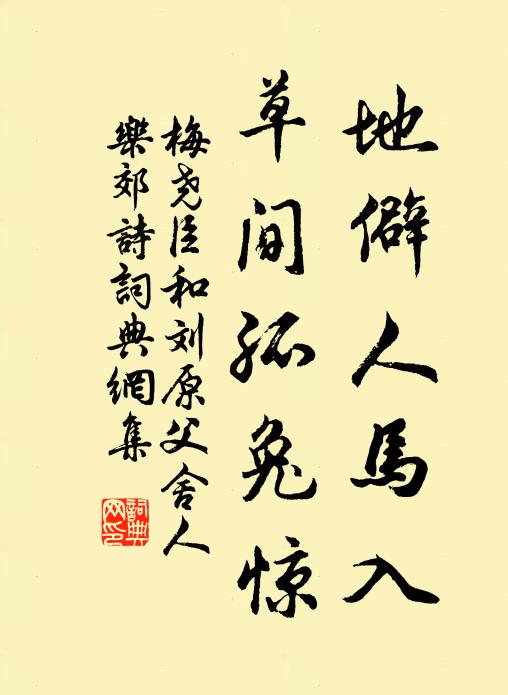 地僻人马入
草间孤兔惊
梅尧臣和刘原父舍人
樂郊詩詞典網集
詞典
网印